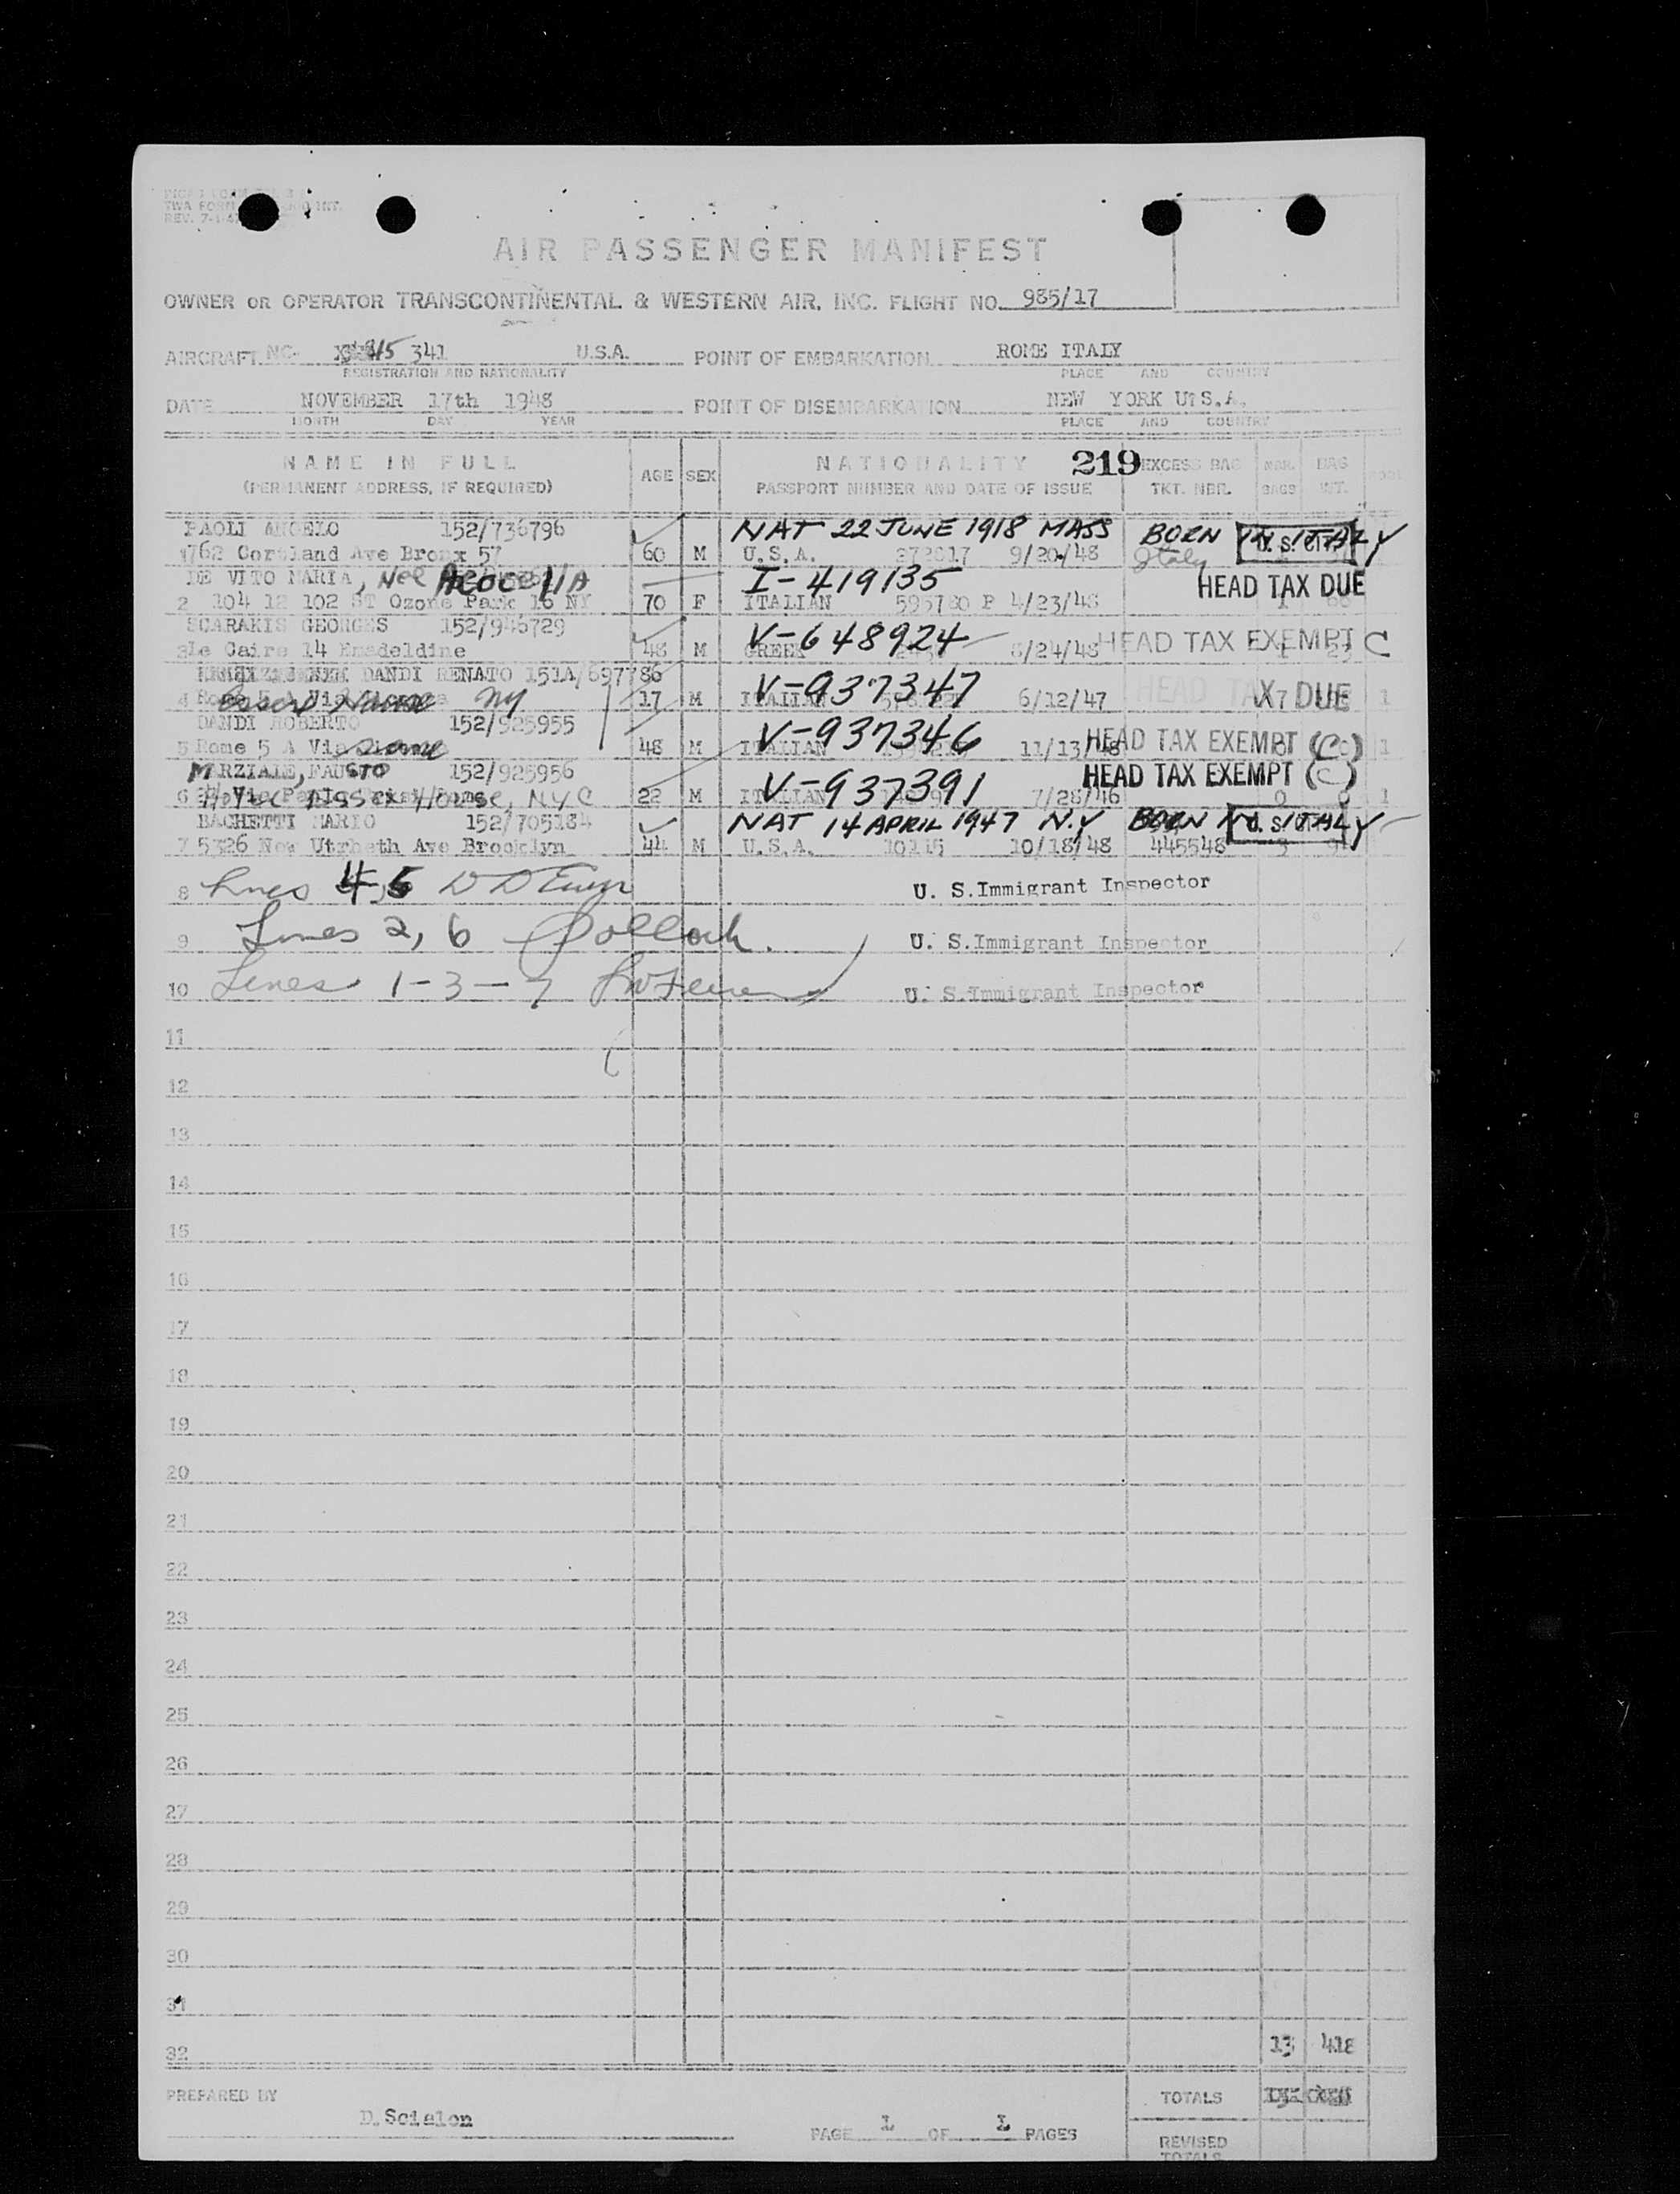 TWA FORM INT.
REV. 7-1-47
AIR PASSENGER MANIFEST
OWNER OR OPERATOR TRANSCONTINENTAL & WESTERN AIR, INC. FLIGHT NO. 985/17
AIRCRAFT NC- 341 U.S.A. POINT OF EMBARKATION ROME ITALY
REGISTRATION AND NATIONALITY PLACE AND COUNTRY
DATE NOVEMBER 17th 1948 POINT OF DISEMBARKATION NEW YORK U.S.A.
MONTH DAY YEAR PLACE AND COUNTRY
NAME IN FULL AGE SEX NATIONALITY 219 EXCESS BAG NBR. BAG
(PERMANENT ADDRESS, IF REQUIRED) PASSPORT NUMBER AND DATE OF ISSUE TKT. NBR. BAGS WT.
PAOLI ANGELO 152/736796 NAT 22 JUNE 1918 MASS BORN IN ITALY
1 762 Cortland Ave Bronx 57 60 M U.S.A. 9/20/48 Italy U.S. CIT
DE VITO MARIA, Nee I-419135 HEAD TAX DUE
2 104 12 102 ST Ozone Park 16 NY 70 F ITALIAN P 4/23/48
SCARAKIS GEORGES 152/946729 V-648924
3 Le Caire 14 Emadeldine 48 M GREEK 8/24/48 HEAD TAX EXEMPT C
DANDI RENATO 151A/697786 V-937347
4 Rome 5 A Via Essex House NY 17 M ITALIAN 6/12/47 HEAD TAX DUE 1
DANDI ROBERTO 152/925955 V-937346
5 Rome 5 A Via same 48 M ITALIAN 11/13/48 HEAD TAX EXEMPT (C) 1
MARZIALE, FAUSTO 152/925956 V-937391 HEAD TAX EXEMPT (C)
6 Essex House, NYC 22 M ITALIAN 7/28/46 0 0 1
BACHETTI MARIO 152/705184 NAT 14 APRIL 1947 N.Y BORN IN ITALY
7 5326 New Utrheth Ave Brooklyn 44 M U.S.A. 10115 10/18/48 445548 U.S. CIT
8 Lines 4, 5 U. S. Immigrant Inspector
9 Lines 2, 6 Pollock. U. S. Immigrant Inspector
10 Lines 1-3-7 U. S. Immigrant Inspector
11
12
13
14
15
16
17
18
19
20
21
22
23
24
25
26
27
28
29
30
31
32 13 418
PREPARED BY D. Scialon TOTALS
PAGE 1 OF 1 PAGES REVISED
TOTALS